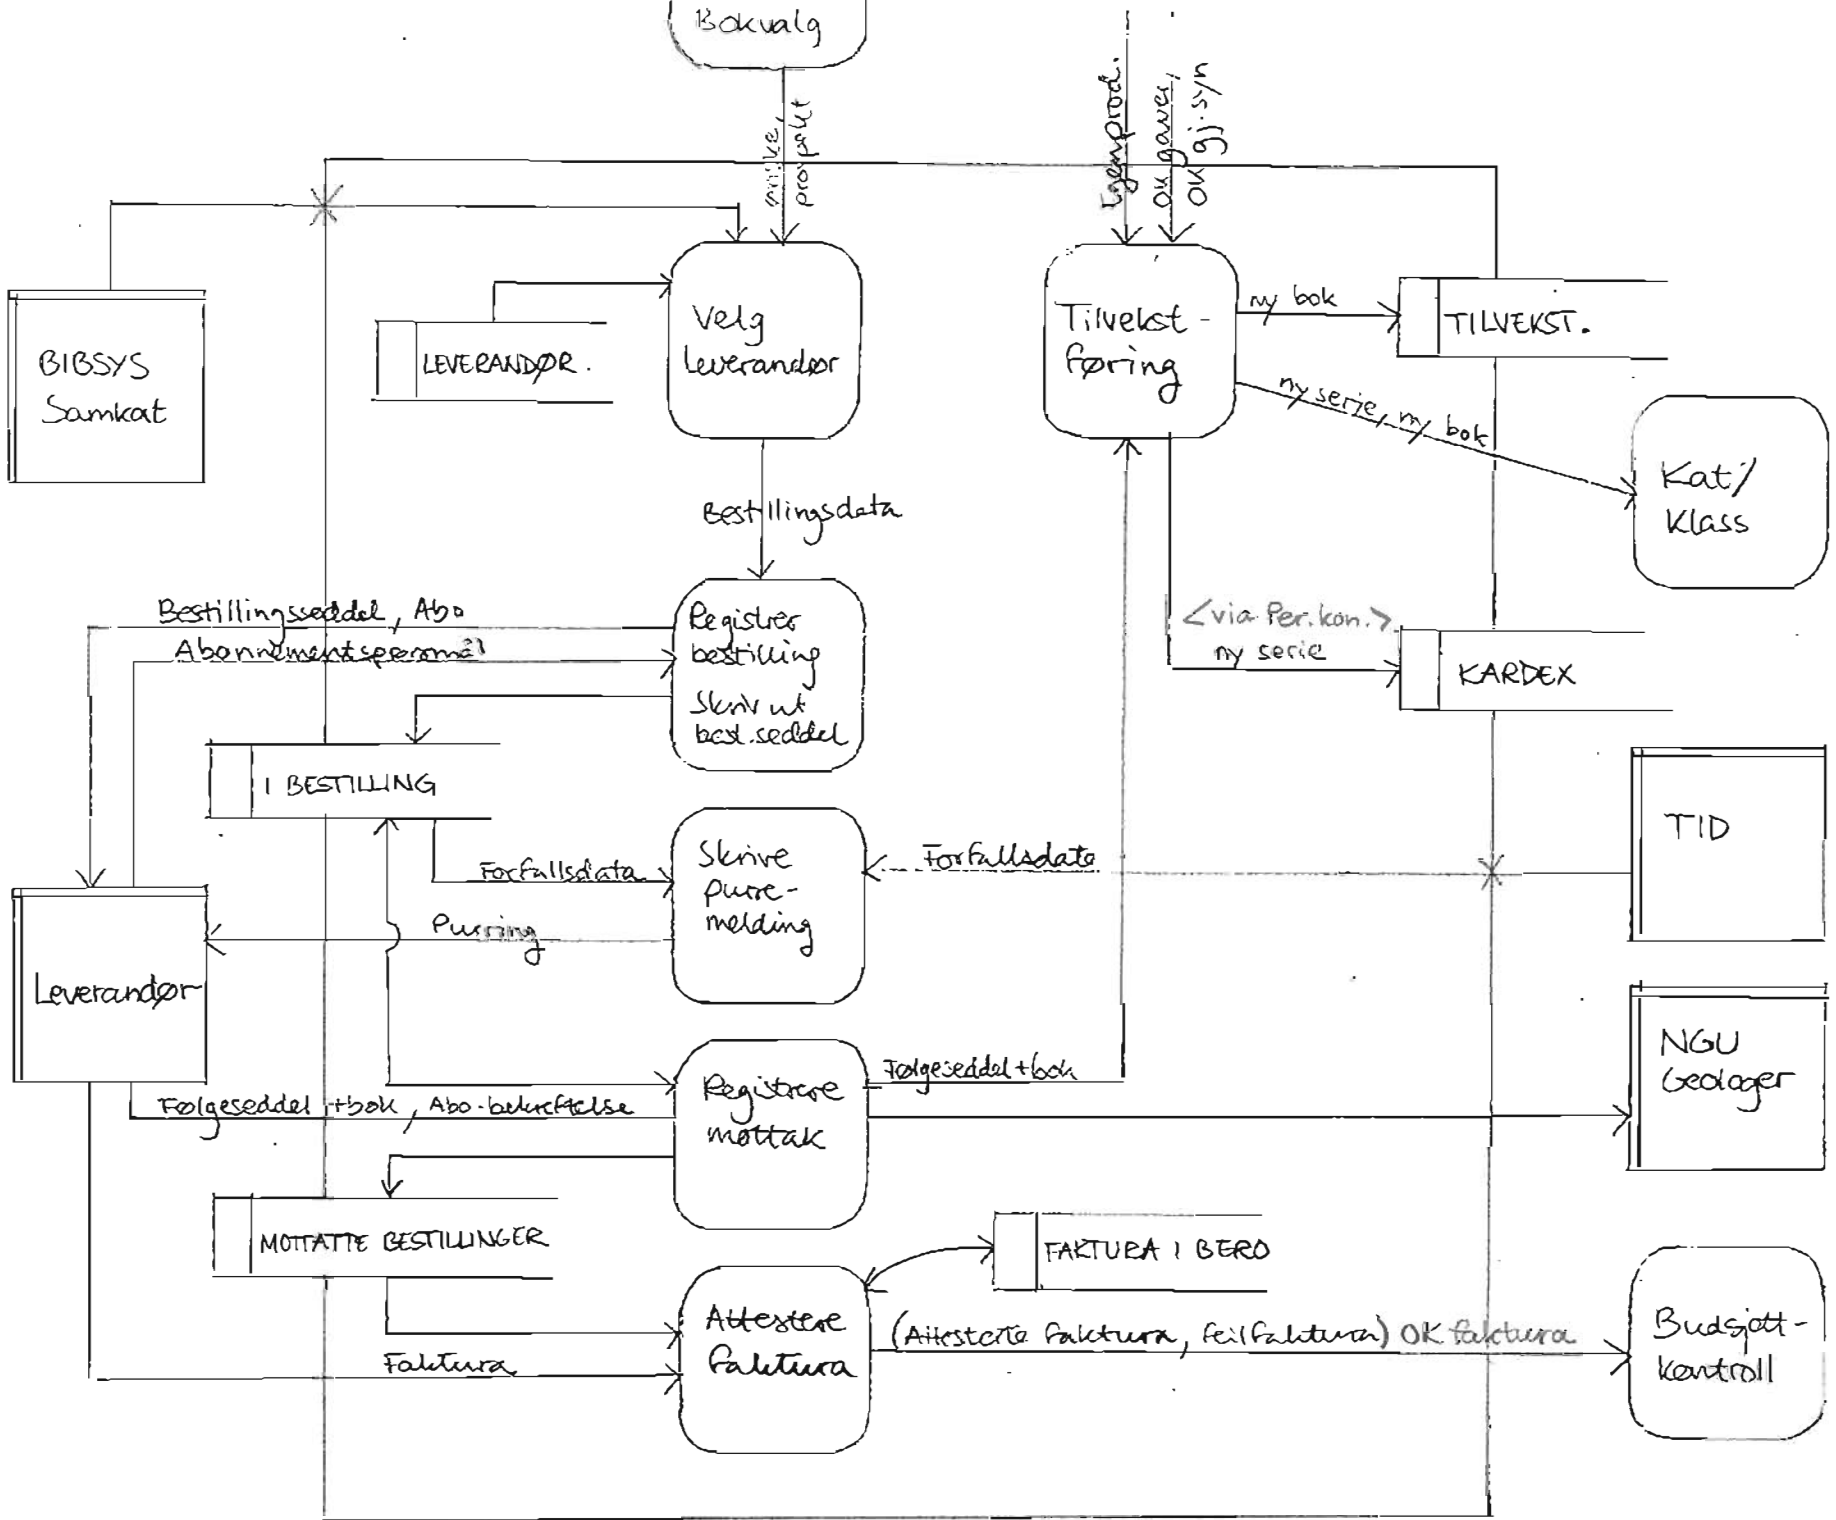 Bokvalg
ønske,
prospekt
Egenprod.
OK gaver,
OK gj.syn
BIBSYS
Samkat
LEVERANDØR.
Velg
leverandør
Tilvekst-
føring
ny bok
TILVEKST.
ny serie, ny bok
Kat/
Klass
Bestillingsdata
Bestillingsseddel, Abo
Abonnementspørsmål
Registrer
bestilling
Skriv ut
best.seddel
<via Per.kon.>
ny serie
KARDEX
I BESTILLING
Forfallsdata
Skrive
purre-
melding
Forfallsdato
TID
Purring
Leverandør
Følgeseddel+bok
NGU
Geologer
Følgeseddel+bok, Abo-bekreftelse
Registrere
mottak
MOTTATTE BESTILLINGER
FAKTURA I BERO
Attestere
faktura
(Attesterte faktura, feilfaktura) OK faktura
Faktura
Budsjett-
kontroll